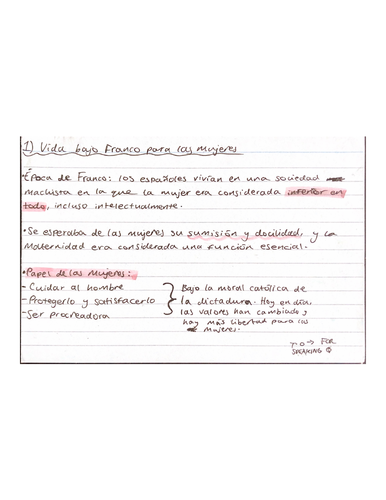 1) Vida bajo Franco para las mujeres
• Época de Franco: los españoles vivían en una sociedad
machista en la que la mujer era considerada inferior en
todo, incluso intelectualmente.
• Se esperaba de las mujeres su sumisión y docilidad, y la
maternidad era considerada una función esencial.
• Papel de las mujeres:
- Cuidar al hombre
- Protegerlo y satisfacerlo
- Ser procreadora
Bajo la moral católica de
la dictadura. Hoy en día,
las valores han cambiado y
hay más libertad para las
mujeres.
FOR
SPEAKING